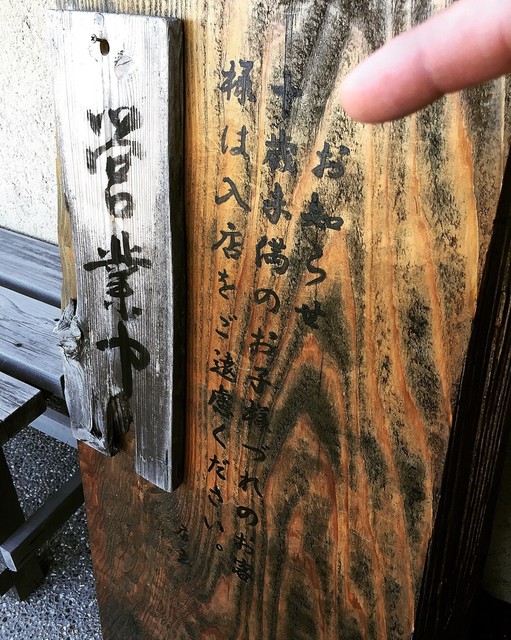 お知らせ
十歳未満のお子様づれのお客
様は入店をご遠慮ください。
店主
営業中